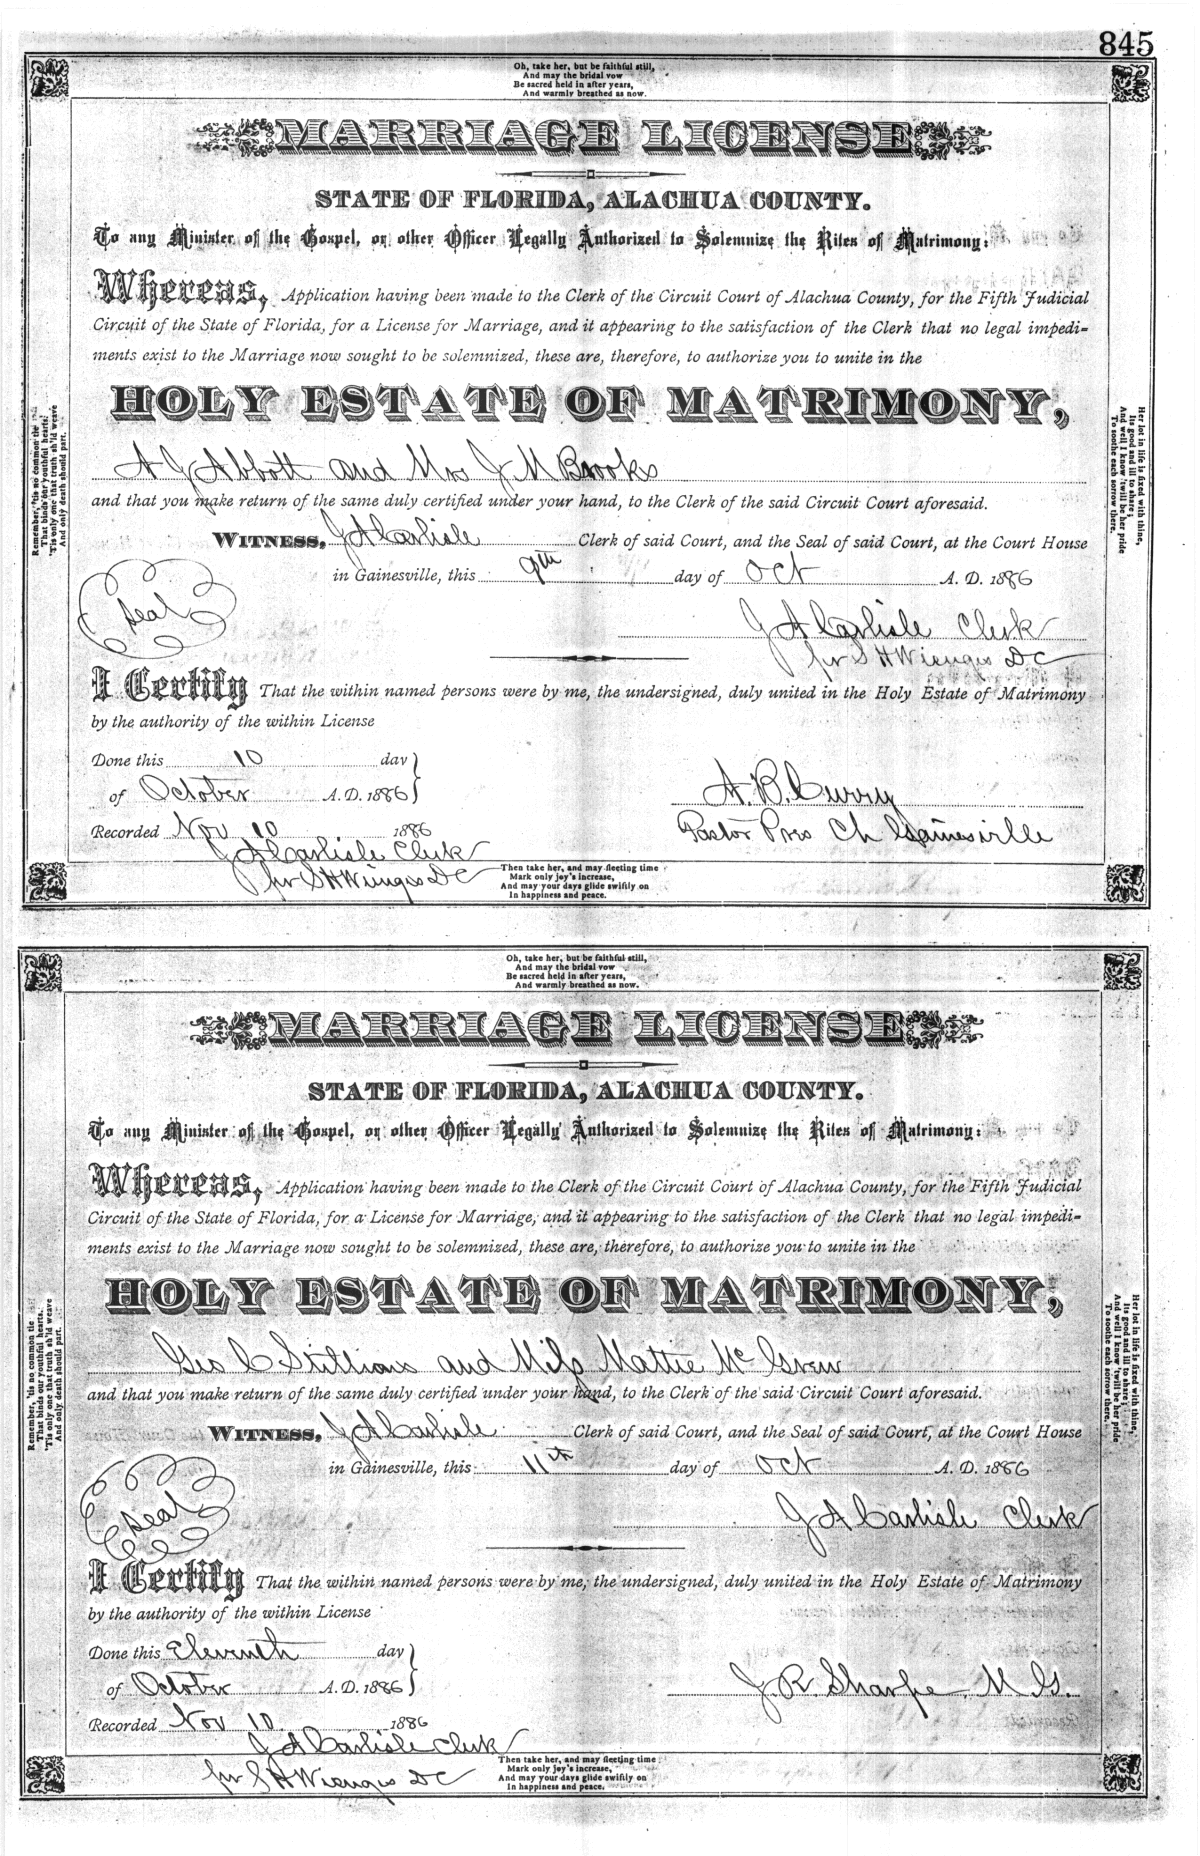 845
Oh, take her, but be faithful still,
And may the bridal vow
Be sacred held in after years,
And warmly breathed as now.
MARRIAGE LICENSE
STATE OF FLORIDA, ALACHUA COUNTY.
To any Minister of the Gospel, or other Officer Legally Authorized to Solemnize the Rites of Matrimony:
Whereas, Application having been made to the Clerk of the Circuit Court of Alachua County, for the Fifth Judicial
Circuit of the State of Florida, for a License for Marriage, and it appearing to the satisfaction of the Clerk that no legal impedi-
ments exist to the Marriage now sought to be solemnized, these are, therefore, to authorize you to unite in the
HOLY ESTATE OF MATRIMONY,
A J Abbott and Mrs J M Brooks
and that you make return of the same duly certified under your hand, to the Clerk of the said Circuit Court aforesaid.
WITNESS, J A Carlisle Clerk of said Court, and the Seal of said Court, at the Court House
in Gainesville, this 9th day of Oct A. D. 1886
Seal
J A Carlisle Clerk
pr S H Wienges DC
I Certify That the within named persons were by me, the undersigned, duly united in the Holy Estate of Matrimony
by the authority of the within License
Done this 10 day
of October A.D. 1886
A. B. Curry
Pastor Pres Ch Gainesville
Recorded Nov 10 1886
J A Carlisle Clerk
pr S H Wienges DC
Then take her, and may fleeting time
Mark only joy's increase,
And may your days glide swiftly on
In happiness and peace.
Remember, 'tis no common tie
That binds our youthful hearts;
'Tis only one that truth sh'ld weave
And only death should part.
Her lot in life is fixed with thine,
Its good and ill to share;
And well I know 'twill be her pride
To soothe each sorrow there.
Oh, take her, but be faithful still,
And may the bridal vow
Be sacred held in after years,
And warmly breathed as now.
MARRIAGE LICENSE
STATE OF FLORIDA, ALACHUA COUNTY.
To any Minister of the Gospel, or other Officer Legally Authorized to Solemnize the Rites of Matrimony:
Whereas, Application having been made to the Clerk of the Circuit Court of Alachua County, for the Fifth Judicial
Circuit of the State of Florida, for a License for Marriage, and it appearing to the satisfaction of the Clerk that no legal impedi-
ments exist to the Marriage now sought to be solemnized, these are, therefore, to authorize you to unite in the
HOLY ESTATE OF MATRIMONY,
Geo C Stillions and Miss Mattie McGrew
and that you make return of the same duly certified under your hand, to the Clerk of the said Circuit Court aforesaid.
WITNESS, J A Carlisle Clerk of said Court, and the Seal of said Court, at the Court House
in Gainesville, this 11th day of Oct A. D. 1886
Seal
J A Carlisle Clerk
I Certify That the within named persons were by me, the undersigned, duly united in the Holy Estate of Matrimony
by the authority of the within License
Done this Eleventh day
of October A.D. 1886
J. R. Sharpe M. G.
Recorded Nov 10 1886
J A Carlisle Clerk
pr S H Wienges DC
Then take her, and may fleeting time
Mark only joy's increase,
And may your days glide swiftly on
In happiness and peace.
Remember, 'tis no common tie
That binds our youthful hearts;
'Tis only one that truth sh'ld weave
And only death should part.
Her lot in life is fixed with thine,
Its good and ill to share;
And well I know 'twill be her pride
To soothe each sorrow there.